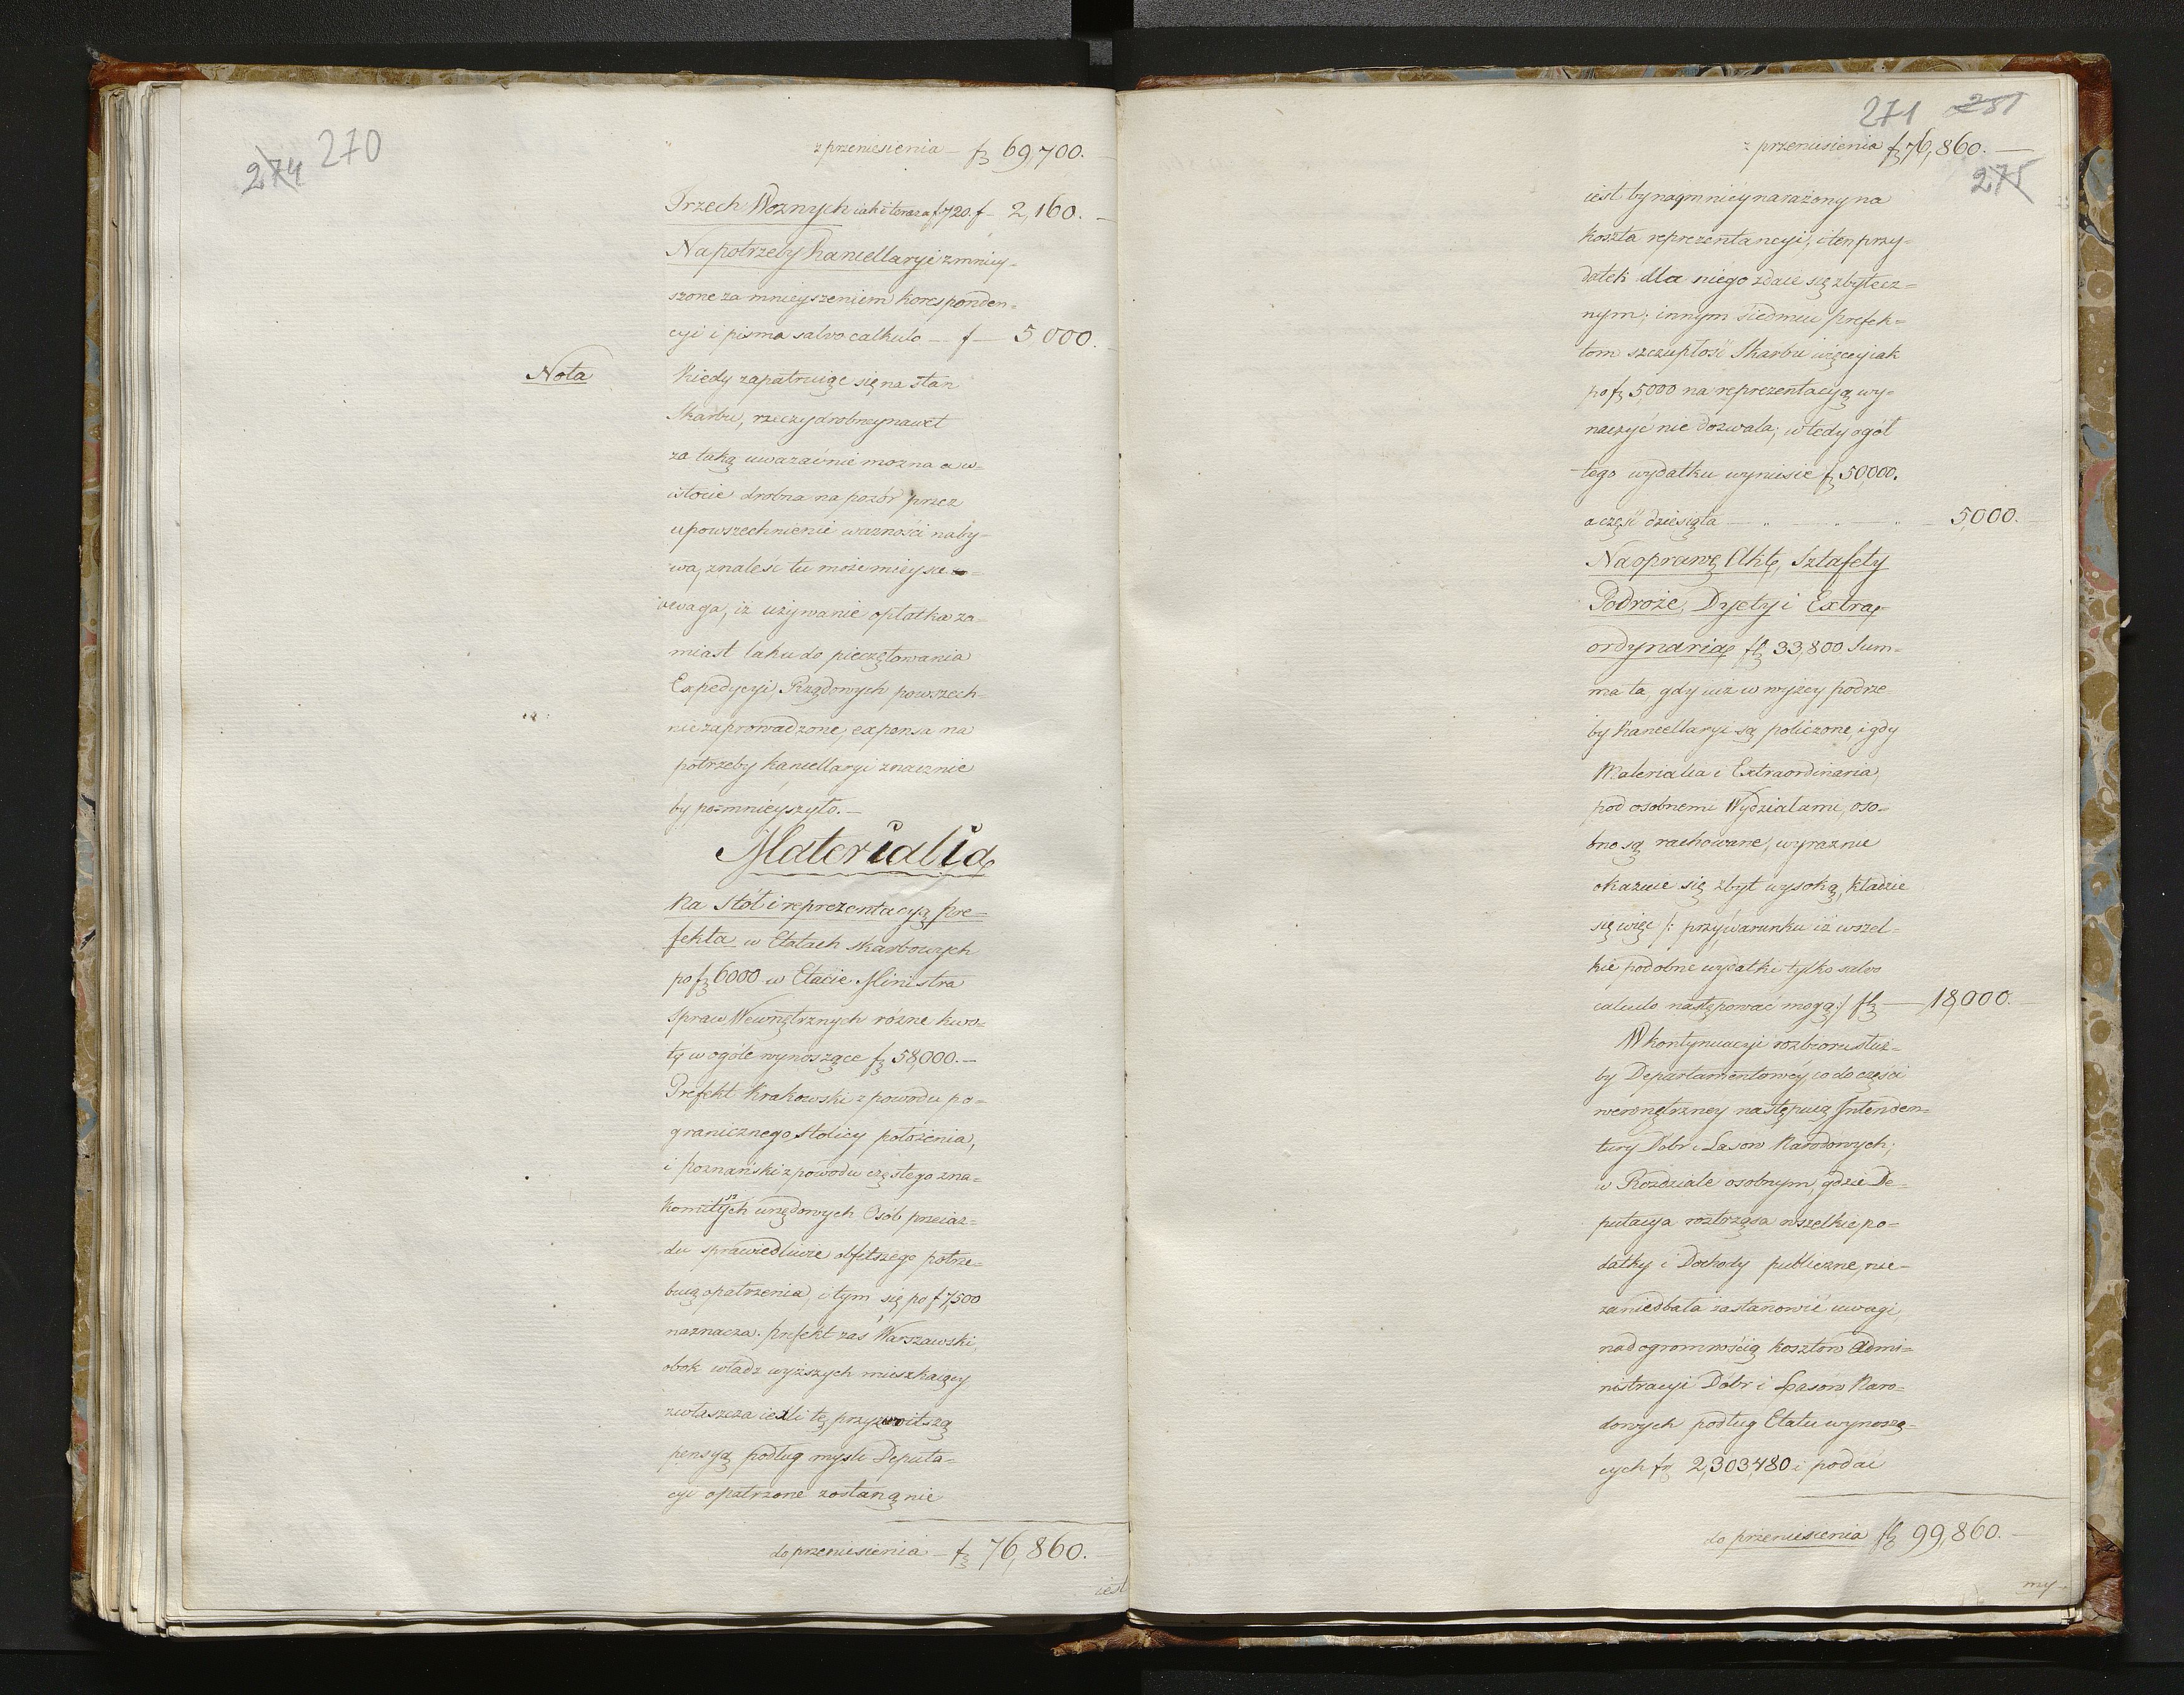 274 270
z przeniesienia — f 69,700.
Trzech Woznych iak i teraz a f 720. f — 2,160. —
Na potrzeby Kancellaryi zmniey-
szone za mnieyszeniem korresponden=
cyi i pisma salvo calkulo — f — 5000.
Nota
Kiedy zapatruiąc się na stan
Skarbu, rzeczy drobney nawet
za taką uwazać nie mozna a w=
istocie drobna na pozór przez
upowszechnienie wazności naby=
wa, znaleść tu może mieysce
uwaga, iż używanie opłatka za=
miast laku do pieczętowania
Expedycyi Rządowych powszech=
nie zaprowadzone, expensa na
potrzeby kancellaryi znacznie
by pozmnieyszyło. —
Materialia
Na Stół i reprezentacyą Pre=
fekta w Etatach skarbowych
po f 6000 w Etacie Ministra
Spraw Wewnętrznych różne kwo=
ty w ogóle wynoszące f 58,000. —
Prefekt Krakowski z powodu po=
granicznego stolicy położenia,
i poznański z powodu częstego zna=
komitszych urzędowych Osób przeiaz=
du sprawiedliwie obfitszego potrze=
buią opatrzenia, i tym się po f 7,500
naznacza. prefekt zaś Warszawski,
obok władz wyższych mieszkaiący
zwłaszcza ieżli tę przyzwoitszą
pensyą podług mysli Deputa=
cyi opatrzone zostaną nie
do przeniesienia — f 76,860. —
iest
271 281
z przeniesienia f 76,860. —
275
iest bynaymniey narażony na
koszta reprezentancyi, i ten przy=
datek dla niego zdaie się zbytecz=
nym; innym siedmiu prefek=
tom szczupłość Skarbu więcey iak
po f 5,000 na reprezentacyą wy=
naczyć nie dozwala; wtedy ogół
tego wydatku wyniesie f 50,000.
a część dziesiąta — „ — „ — „ — 5,000.
Na oprawę Akt, Sztafety
Podróże, Dyety i Extra=
ordynaria f 33,800 Sum=
ma ta, gdy iuż w wyżey podrze=
by Kancellaryi są policzone, i gdy
Materialia i Extraordinaria,
pod osobnemi Wydziałami, oso=
bno są rachowane, wyraznie
okazuie się zbyt wysoką, kładzie
się więc /: przy warunku iż wszel=
kie podobne wydatki tylko salvo
calculo następować mogą :/ f — 18,000. —
W kontynuacyi rozbioru służ=
by Departamentowey co do części
wewnętrzney następuią Intenden=
tury Dóbr i Lasów Narodowych;
w Rozdziale osobnym, gdzie De=
putacya roztrząsa wszelkie po=
datky i Dochody publiczne, nie=
zaniedbała zastanowić uwagi,
nad ogromnością kosztów Admi=
nistracyi Dóbr i Lasów Naro=
dowych podług Etatu wynoszą=
cych f 2,303,480 i podać
do przeniesienia f 99,860. —
my-